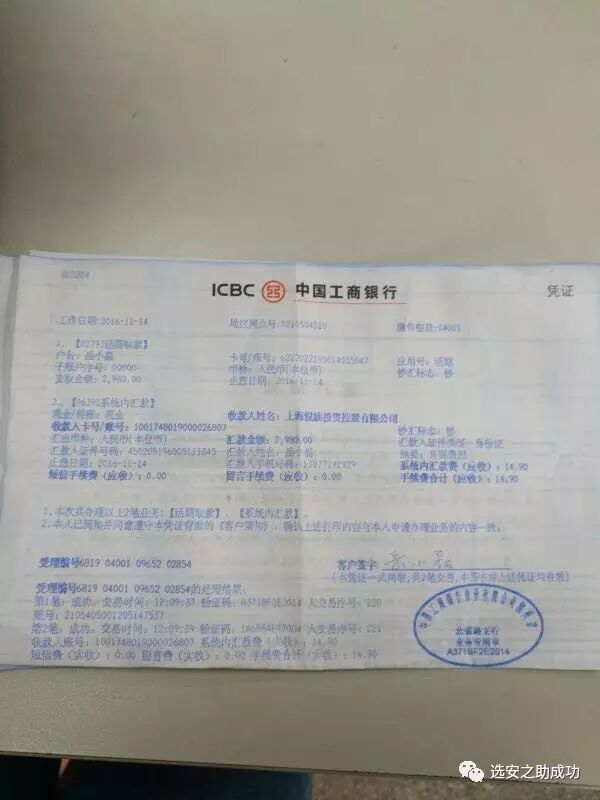 ICBC 中国工商银行
凭证
工作日期:2016-11-14 地区网点号:0210504510 操作柜员:04001
1、【02793活期取款】
户名:岳小磊 应用号:活期
子账户序号:00000 币种:人民币(本位币) 钞汇标志:钞
支取金额:2,980.00 止息日期:2016-11-14
2、【06393系统内汇款】
现金/转账:现金 收款人姓名:上海悦族投资控股有限公司
收款人卡号/账号:1001748019000026807 钞汇标志:钞
汇出币种:人民币(本位币) 汇款金额:2,980.00 汇款人证件类型:身份证
汇款人证件号码: 汇款人姓名:岳小磊
止息日期:2016-11-14 汇款人手机号码:13877241929 系统内汇款费(应收):14.90
短信手续费(应收):0.00 留言手续费(应收):0.00 手续费合计(应收):14.90
1、本次共办理以上2笔业务:【活期取款】、【系统内汇款】。
2、本人已阅知并同意遵守本凭证背面的《客户须知》,确认上述打印内容与本人申请办理业务的内容一致。
受理编号6819 04001 09652 02854
客户签字:
受理编号6819 04001 09652 02854的处理结果:
第1笔:成功, 交易时间:12:09:37 验证码: 大交易序号:220
账号:2105405001205147537
第2笔:成功, 交易时间:12:09:39 验证码: 大交易序号:221
收款人账号:1001748019000026807 系统内汇款费(实收):14.90
短信费(实收):0.00 留言费(实收):0.00 手续费合计(实收):14.90
北雀路支行
业务专用章
A371BF2E2014
选安之助成功